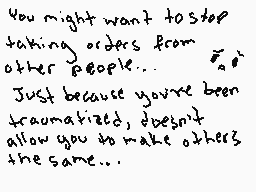 You might want to stop
taking orders from
other people...
Just because you've been
traumatized, doesn't
allow you to make others
the same...